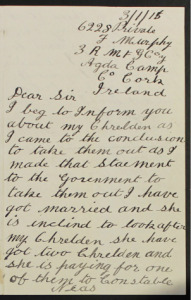 3/1/18
6228 Private
F Murphy
3 R M F G Coy
Agda Camp
Co Cork
Ireland
Dear Sir
I beg to Inform you
about my Chrelden as
I came to the conclusion
to take them out as I
made that Stacment
to the Gorenment to
take them out I have
got married and she
is inclind to look after
my Chrelden she have
got two Chrelden and
she is paying for one
of them to Constable